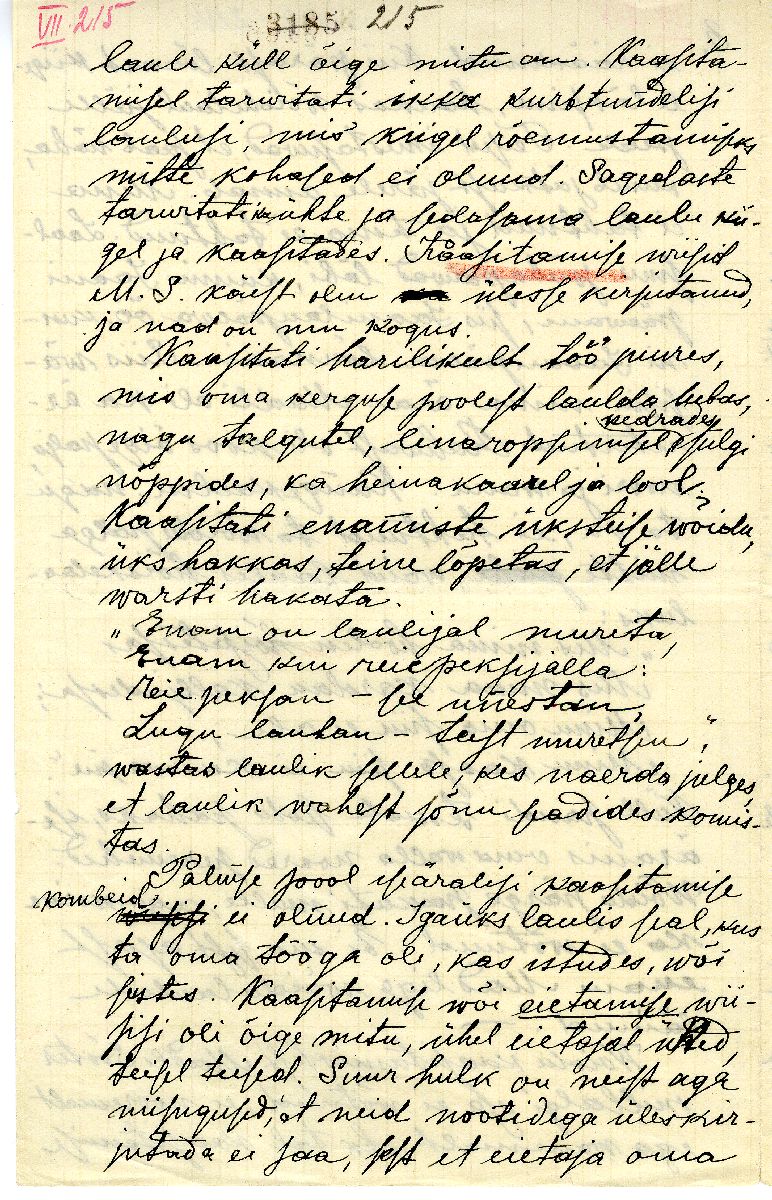 VII 215
3185 215
laule küll õige mitu on. Kaasita-
misel tarwitati ikka kurbtundelisi
laulusi, mis kiigel rõemustamiseks
mitte kohased ei olnud. Sagedaste
tarwitati ka ühte ja sedasama laulu kii-
gel ja kaasitades. Kaasitamise wiisid
M. S. käest olen ülesse kirjutanud,
ja nad on mu kogus.
Kaasitati harilikult töö juures,
mis oma kerguse poolest laulda lubas,
kedrades
nagu talgutel, linaroppimisel, sulgi
nõppides, ka heinakaarel ja lool.
Kaasitati enamiste üksteise wõidu,
üks hakkas, teine lõpetas, et jälle
warsti hakata.
„Enam on laulijal mureta,
Enam kui reiepeksijalla:
Reie peksan – se unestan,
Lugu laulan – teist muretsen",
wastas laulik sellele, kes naerda julges,
et laulik wahest sõnu seadides komis-
tas.
Palmse pool iseäralisi kaasitamise
kombeid
wiisisi ei olnud. Igaüks laulis seal, kus
ta oma tööga oli, kas istudes, wõi
seistes. Kaasitamise wõi eietamise wii-
sisi oli õige mitu, ühel eietajal ühed,
teisel teised. Suur hulk on neist aga
niisugused, et neid nootidega üleskir-
jutada ei saa, sest et eietaja oma